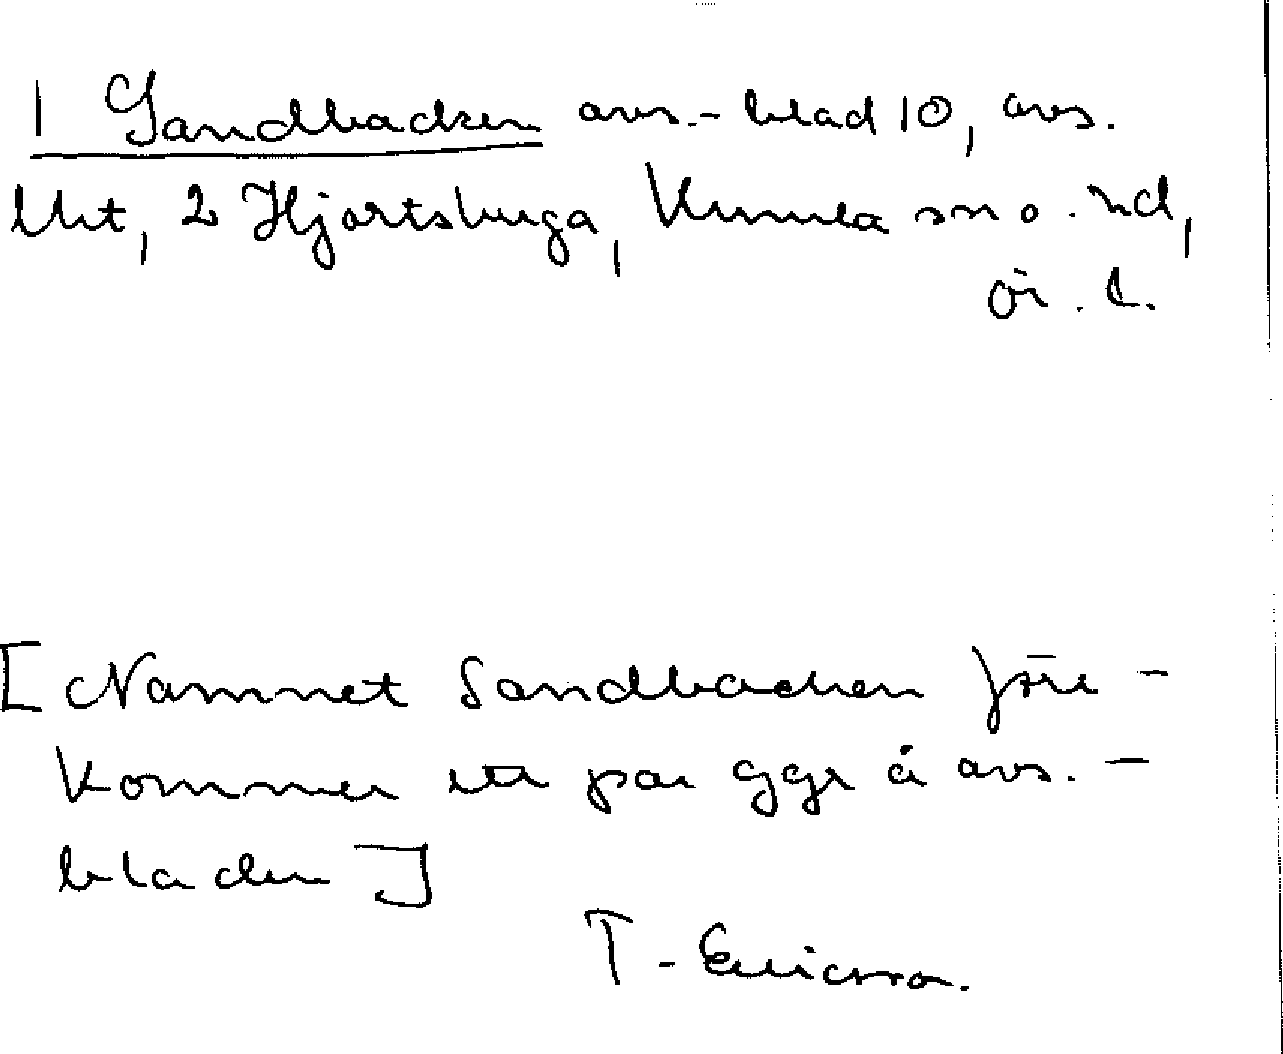 1 Sandbacken avs.-blad 10, avs.
litt, 2 Hjortsberga, Kumla sn o. hd,
ör. l.
[Namnet Sandbacken före-
kommer ett par ggr å avs.-
bladen]
T. Ericsson.